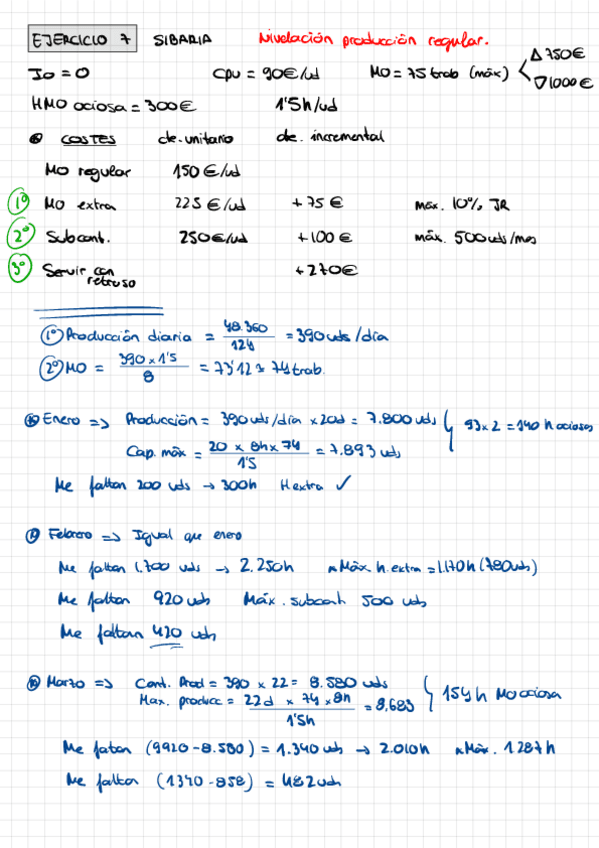 EJERCICIO 7 SIBARIA Nivelación producción regular.
Io = 0 Cpu = 90€/ud MO = 75 trab (máx) Δ 750€
∇ 1000€
HMO ociosa = 300€ 1'5h/ud
COSTES de. unitario de. incremental
MO regular 150 €/ud
1º MO extra 225 €/ud + 75 € máx. 10% JR
2º Subcont. 250€/ud + 100 € máx. 500uds/mes
3º Servir con retraso + 270€
1º Producción diaria = 48.360 / 124 = 390 uds/día
2º MO = 390 x 1'5 / 8 = 73'12 ≈ 74 trab.
Enero => Producción = 390 uds/día x 20d = 7.800 uds } 93 x 2 = 140 h ociosas
Cap. máx = 20 x 8h x 74 / 1'5 = 7.893 uds
Me faltan 200 uds → 300h H extra ✓
Febrero => Igual que enero
Me faltan 1.700 uds → 2.250h Máx h. extra = 1.170h (780uds)
Me faltan 920 uds Máx. subcont 500 uds
Me faltan 420 uds
Marzo => Cant. Prod = 390 x 22 = 8.580 uds } 154 h MO ociosa
Max. producc = 22d x 74 x 8h / 1'5h = 8.683
Me faltan (9920 - 8.580) = 1.340 uds → 2.010h Máx. 1287h
Me faltan (1340 - 858) = 482 uds